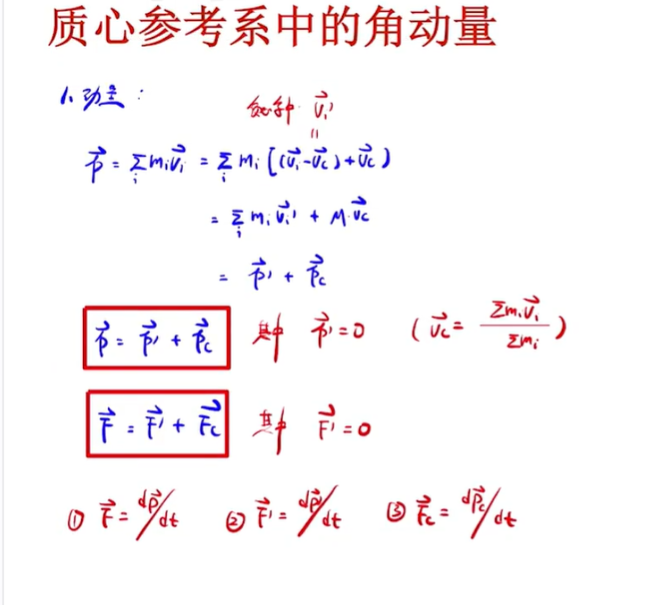 质心参考系中的角动量
1、动量：
质心系中 v⃗ᵢ'
॥
p⃗ = Σᵢ mᵢv⃗ᵢ = Σᵢ mᵢ[(v⃗ᵢ-v⃗c)+v⃗c]
= Σᵢ mᵢv⃗ᵢ' + Mv⃗c
= p⃗' + p⃗c
p⃗ = p⃗' + p⃗c 其中 p⃗'=0 (v⃗c= Σmᵢv⃗ᵢ/Σmᵢ)
F⃗ = F⃗' + F⃗c 其中 F⃗'=0
① F⃗ = dp⃗/dt ② F⃗' = dp⃗'/dt ③ F⃗c = dp⃗c/dt